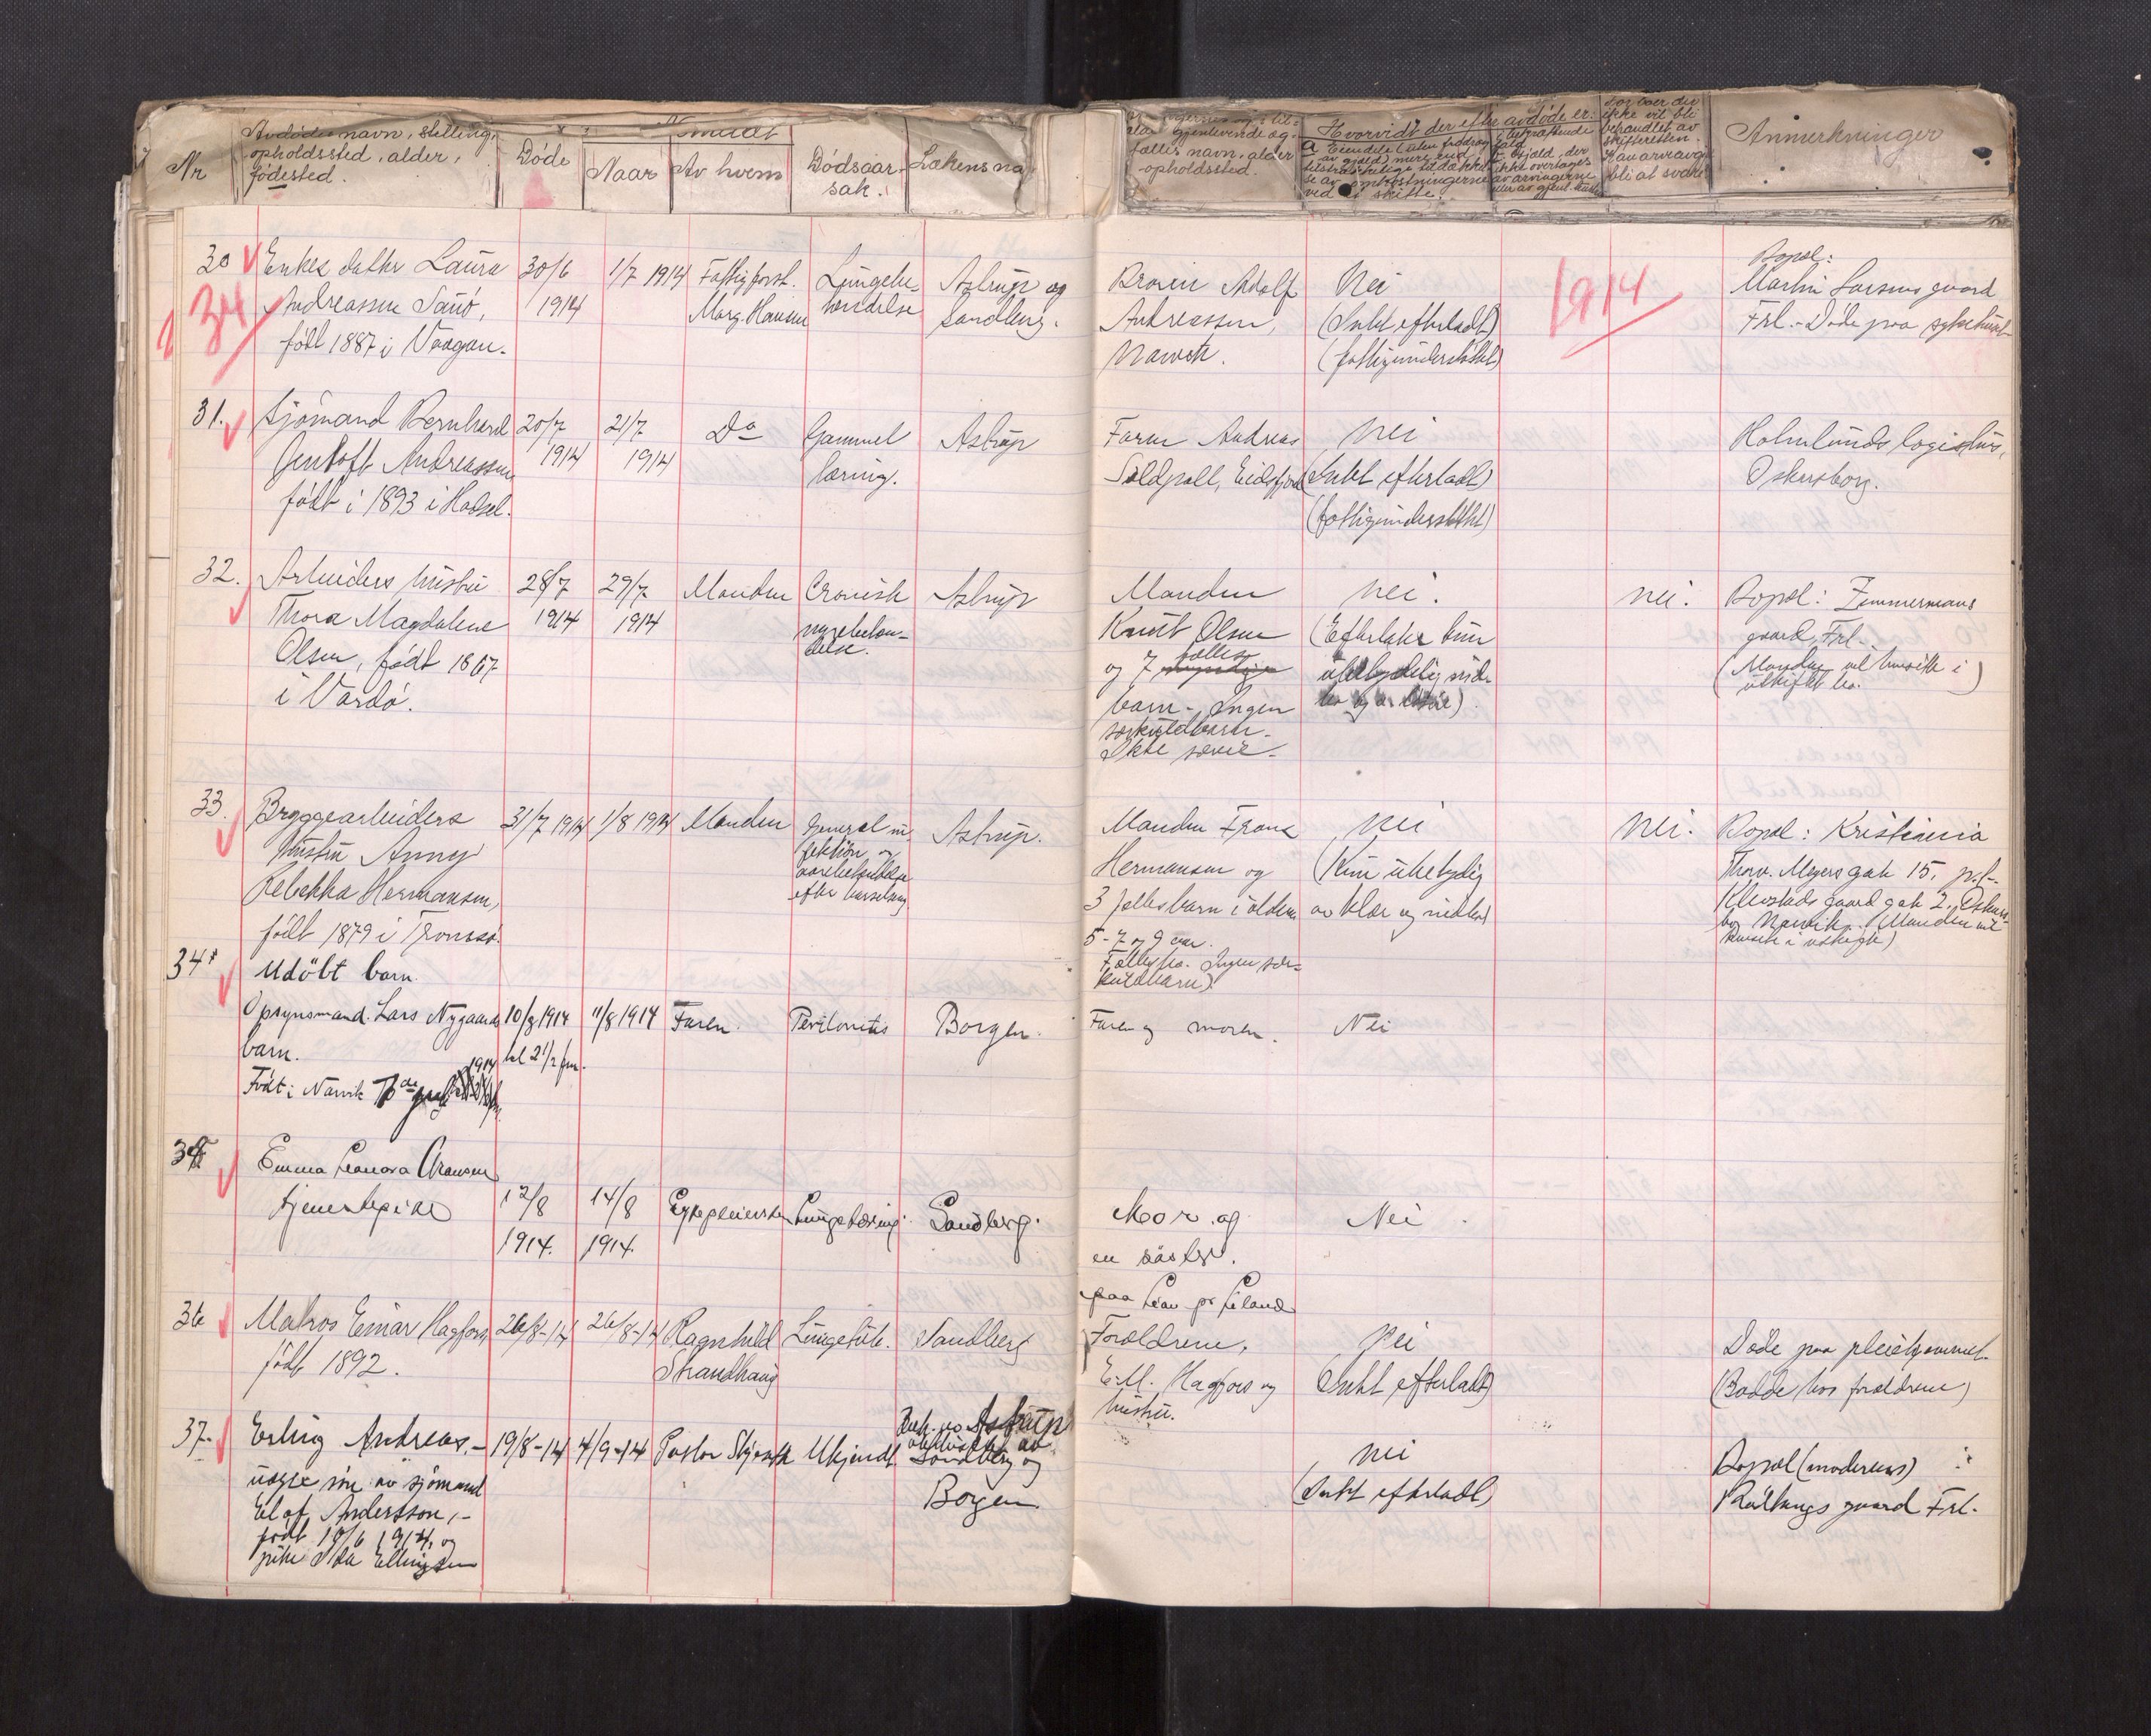 Nr
Avdødes navn, stilling,
opholdssted, alder,
fødested.
Døde
Anmeldt
Naar
Av hvem
Dødsaar-
sak.
Lækens na
gjenlevende æg-
tefælles navn, alder
opholdssted.
Hvorvidt der efter avdøde er:
Anmerkninger
30
34
Enkes datter Laura
Andreassen Sanö,
född 1887 i Vaagan.
30/6
1914
1/7 1914
Fattigforst.
Marg. Hansen
Lungebe-
tændelse
Astrup og
Sandberg.
Broren Adolf
Andreassen,
Narvik.
Nei
(Intet efterladt)
(fattigunderstöttet)
1914
Bopæl:
Martin Larsens gaard
Frl. - Døde paa sykehuset
31.
Sjömand Bernhard
Gentoft Andreassen
født i 1893 i Hadsel.
20/7
1914
21/7
1914
Do
Gammel
tæring.
Astrup
Faren Andreas
Soldpall, Eidsfjord
Nei
(Intet efterladt)
(fattigunderstöttet)
Holmlunds logishus,
Oskarsborg.
32.
Arbeiders hustru
Thora Magdalene
Olsen, født 1867
i Vardö.
28/7
1914
29/7
1914
Manden
Cronisk
nyrebeten-
delse.
Astrup
Manden
Knut Olsen
og 7 fælles
barn - Ingen
særkuldbarn.
Ikke særeie -
Nei.
(Efterlater kun
ubetydelig
nei.
Bopæl: Zimmermans
gaard, Frl.
(Manden vil hensitte i
uskiftet bo.)
33.
Bryggearbeiders
hustru Anny
Rebekka Hermansen,
född 1879 i Tromsö.
31/7 1914
1/8 1914
Manden
General in-
fektion og
aarebetendelse
efter barselseng
Astrup.
Manden Frans
Hermansen og
3 fælles barn i alderen
5 - 7 og 9 aar.
Fællesbo. Ingen sær-
kuldbarn).
Nei
(Kun ubetydelig
av klær og indbo)
Nei.
Bopæl: Kristiania
Thorv. Meyers gate 15, p.t.
Klevstads gaard gate 2, Oskars-
borg Narvik. (Manden vil
hensitte i uskifte)
34
Udöbt barn.
Opsynsmand Lars Nygaards
barn.
Født i Narvik
1914
10/8 1914
kl 2 1/2 fm.
11/8 1914
Faren.
Peritonitis
Borgen.
Faren og moren.
Nei
Emma Leonora Aronsen
tjenestepike
12/8
1914.
14/8
1914.
Sykepleiersken
Lungetæring.
Sandberg.
Mor og
en søster.
paa Lean pr Liland
Nei.
36
Matros Einar Hagfors
født 1892.
26/8-14
26/8-14
Ragnhild
Strandhaug
Lungetub.
Sandberg
Forældrene,
E.M. Hagfors og
hustru.
Nei
(Intet efterladt)
Døde paa pleiehjemmet.
(Bodde hos forældrene)
37.
Erling Andreas, -
uægte sön av sjömand
Elof Andersson, -
født 10/6 1914, og
pike Ida Ellingsen
19/8-14
4/9-14
Pastor
Ukjendt
Astrup
Sandberg og
Borgen
nei
(Intet efterladt)
Bopæl (moderens) :
gaard Frl.